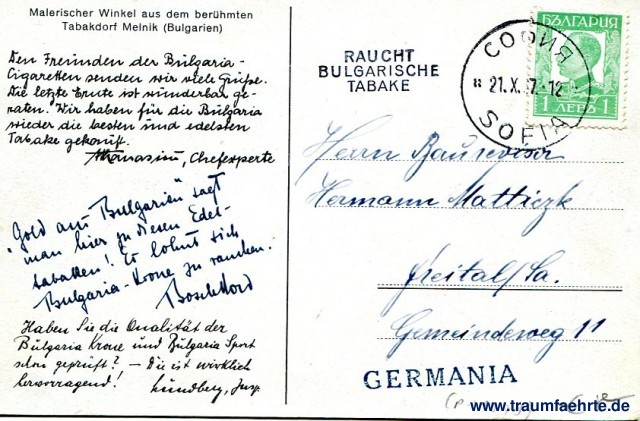 Malerischer Winkel aus dem berühmten
Tabakdorf Melnik (Bulgarien)
Den Freunden der Bulgaria-
Cigaretten senden wir viele Grüße.
Die letzte Ernte ist wunderbar ge-
raten. Wir haben für die Bulgaria
wieder die besten und edelsten
Tabake gekauft.
Athanasiou, Chefexperte
"Gold aus Bulgarien" sagt
man hier zu diesen Edel-
tabaken! Es lohnt sich
Bulgaria-Krone zu rauchen.
Haben Sie die Qualität der
Bulgaria Krone und Bulgaria Sport
schon geprüft? - Die ist wirklich
hervorragend!
Lundberg, Insp.
RAUCHT
BULGARISCHE
TABAKE
БЪЛГАРИЯ
1 ЛЕВЪ 1
СОФИЯ
21.X.37.-12
SOFIA
Herrn Baurevisor
Hermann Mattizk
Freital/Sa.
Gemeindeweg 11
GERMANIA
www.traumfaehrte.de